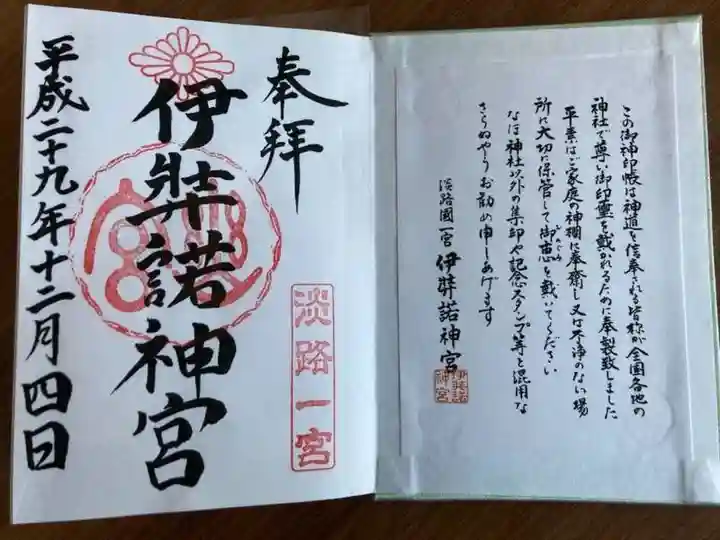 この御神印帳は神道を信奉される皆称が全国各地の
神社で尊い御印璽を戴かれるために奉製致しました
平素はご家庭の神棚に奉齋し又は不浄のない場
所に大切に保管して御恵を戴いてください
なほ神社以外の集印や記念スタンプ等と混用な
さらぬやうお勧め申しあげます
淡路國一宮 伊弉諾神宮
伊弉諾
神宮
奉拝
淡路一宮
伊弉諾神宮
平成二十九年十二月四日